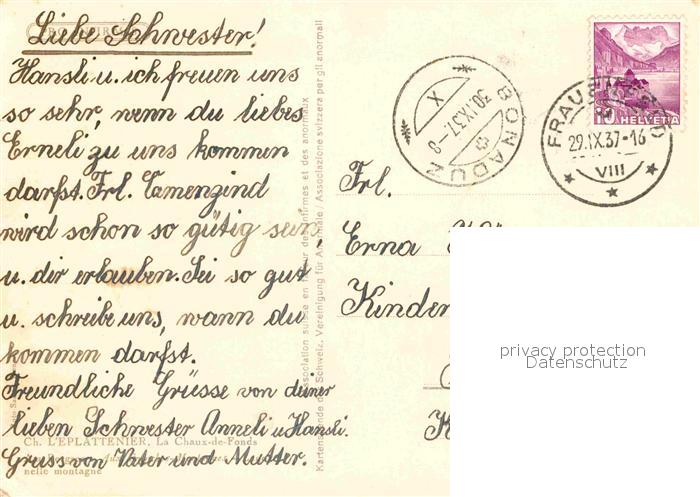 Liebe Schwester!
Hansli u. ich freuen uns
so sehr, wenn du liebes
Erneli zu uns kommen
darfst. Frl. Camenzind
wird schon so gütig sein,
u. dir erlauben. Sei so gut
u. schreibe uns, wann du
kommen darfst.
Freundliche Grüsse von deiner
lieben Schwester Anneli u. Hansli.
Gruss von Vater und Mutter.
Ch. L'EPLATTENIER, La Chaux-de-Fonds
nelle montagne
Association suisse en faveur des infirmes et des anormaux
Kartenspende der Schweiz. Vereinigung für Anormale / Associazione svizzera per gli anormali
BONADUZ
30.IX.37.-8
X
FRAUENFELD
29.IX.37-16
VIII
10 HELVETIA
Frl.
Erna
Kinder
privacy protection
Datenschutz